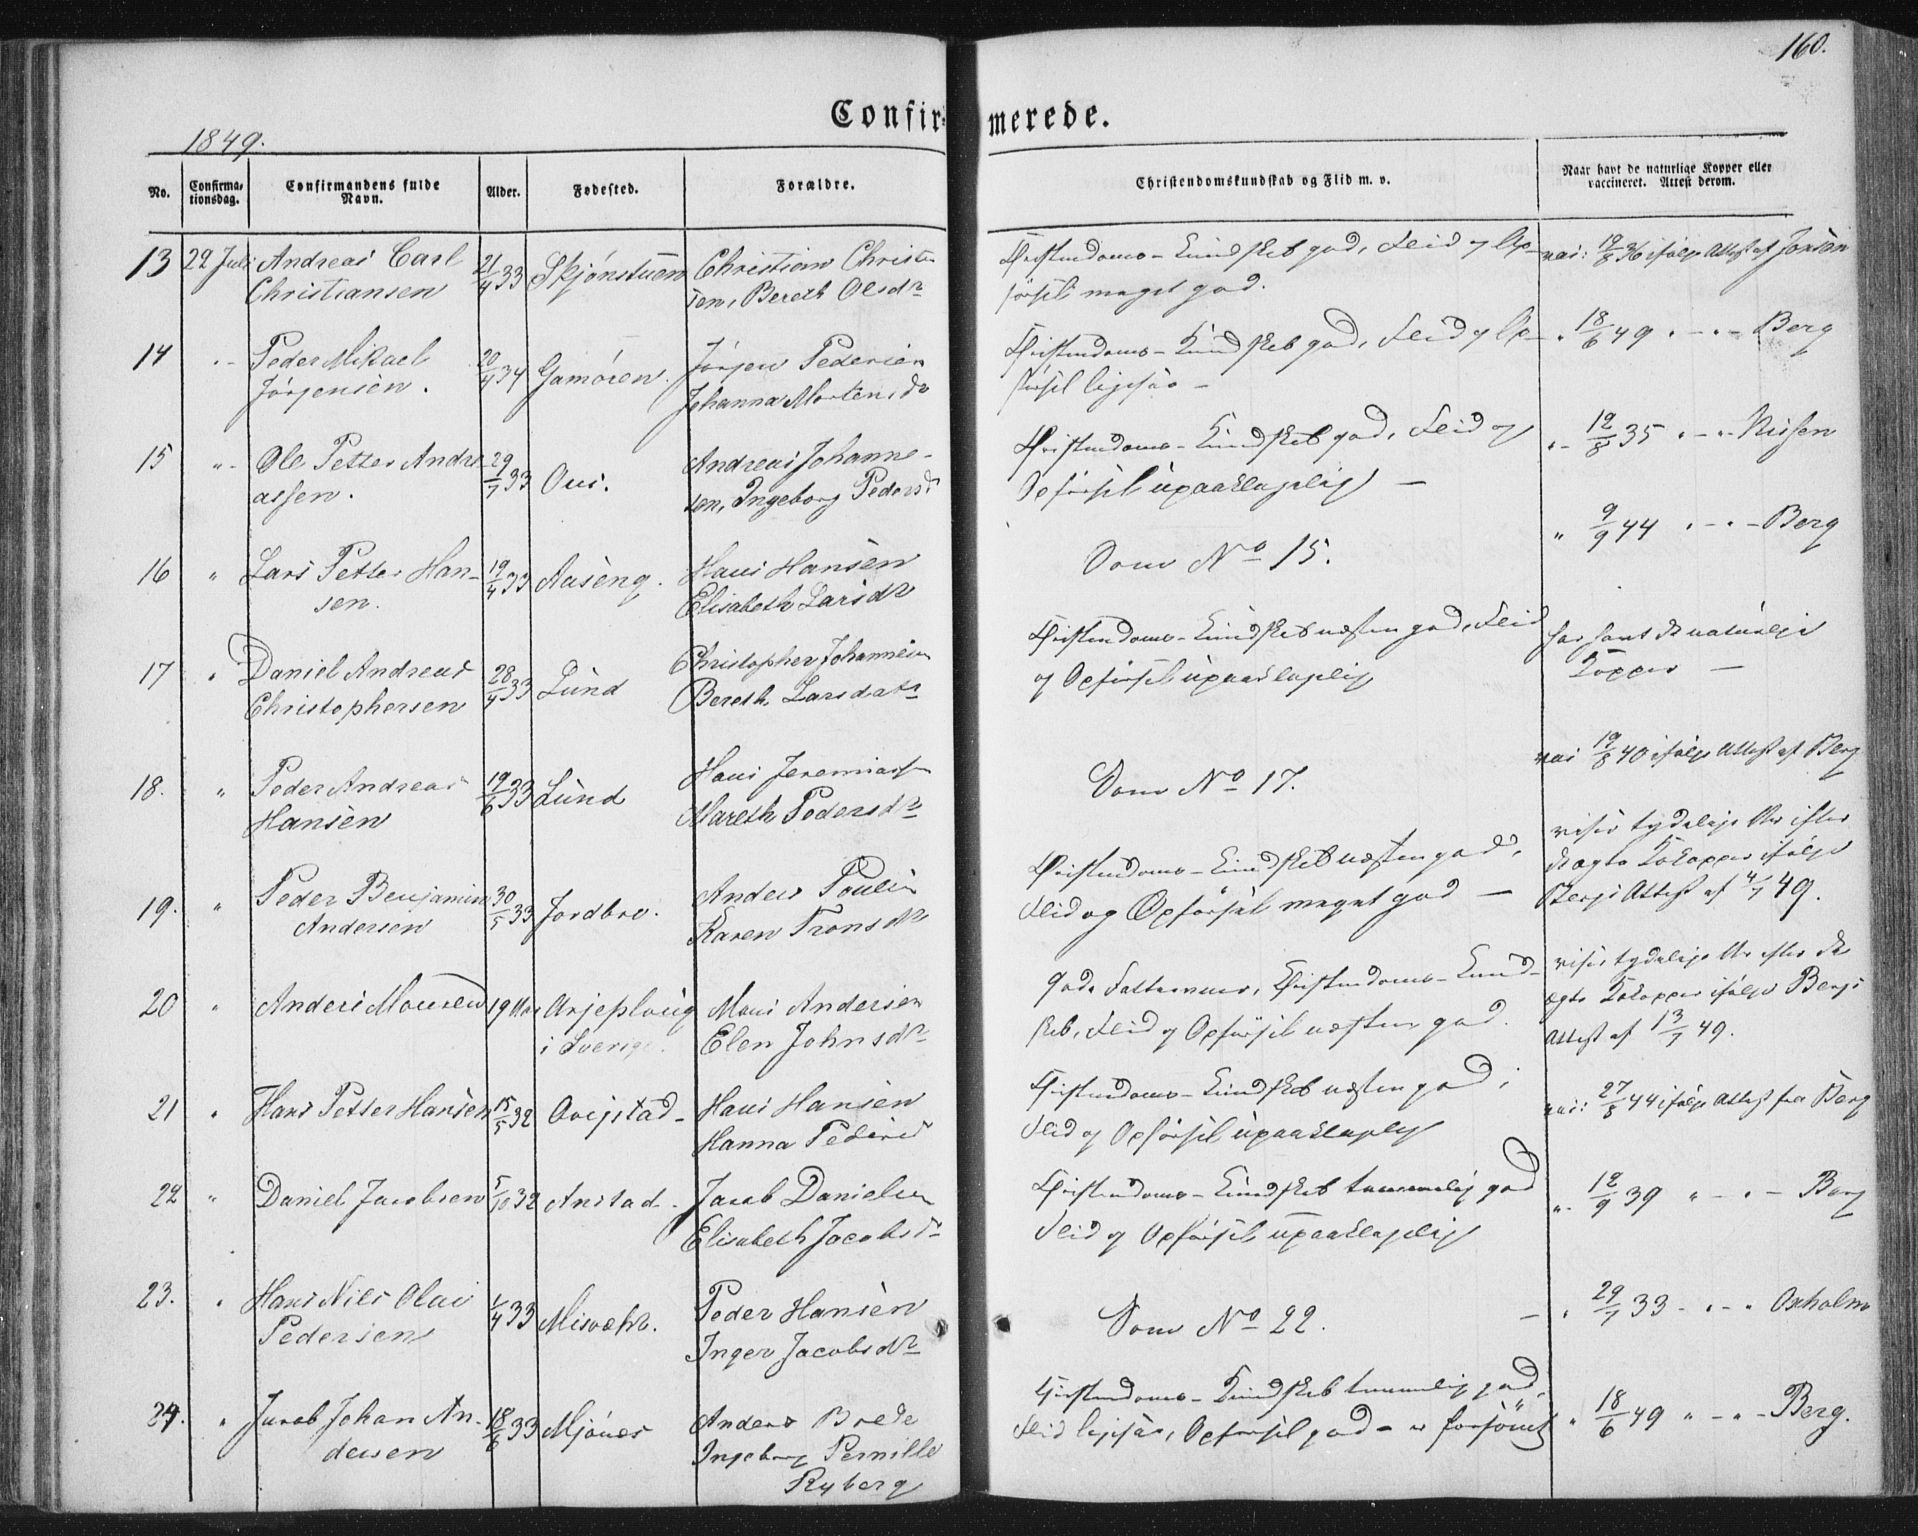 160.
Confirmerede.
1849.
No.
Confirmationsdag.
Confirmandens fulde Navn.
Alder.
Fødested.
Forældre.
Christendomskundskab og Flid m. v.
Naar havt de naturlige Kopper eller vaccineret. Attest derom.
13 22 Juli Andreas Carl 21/4 33 Skjønstuen Christian Christen Christendoms-Kundskab god, Flid og Op- vac: 19/8 36 ifølge Attest af Jonsen
Christiansen sen, Bereth Olsdr førsel meget god.
14 " - Peder Mikael 20/4 34 Gamøren. Jørgen Pedersen Christendoms-Kundskab god, Flid og Op- " 18/6 49 " - " - Berg
Jørgensen. Johanna Mortensdr førsel ligesaa -
15 " - Ole Petter Andre 29/7 33 Ous. Andreas Johanne- Christendoms-Kundskab god, Flid og " - 12/8 35 " - " - Nissen
assen. sen, Ingeborg Pedersd Opførsel upaaklagelig -
16 " Lars Petter Han- 19/4 33 Aaseng. Hans Hansen Som No 15. " 9/9 44 " - " - Berg
sen. Elisabeth Larsdr
17 " Daniel Andreas 28/4 33 Lund Christopher Johannesen Christendoms-Kundskab næsten god, Flid har havt de naturlige
Christophersen Bereth Larsdatr og Opførsel upaaklagelig Kopper -
18. " Peder Andreas 19/6 33 Lund Hans Jeremiass Som No 17. vac 19/8 40 ifølge Attest af Berg
Hansen Mareth Pedersdr
19. " Peder Benjamin 30/5 33 Jordbro. Anders Poulsen Christendoms-Kundskab næsten god, viser tydelige Ar efter
Andersen Karen Tronsdr Flid og Opførsel meget god - de ægte Kokopper ifølge
Bergs Attest af 4/7 49.
20 " Anders Monsen 19 Aar Arjeploug Mons Andersen Gode Fatteevner, Christendoms-Kund- viser tydelige Ar efter de
i Sverige. Elen Johnsdr skab, Flid og Opførsel næsten god. ægte Kokopper ifølge Bergs
Attest af 13/7 49.
21 " Hans Petter Hansen 15/5 32 Hans Hansen Christendoms-Kundskab næsten god, vac: 27/8 44 ifølge Attest fra Berg
Hanna Pedersd Flid og Opførsel upaaklagelig
22 " Daniel Jacobsen 5/10 32 Anstad. Jacob Danielsen Christendoms-Kundskab temmelig god " - 12/9 39 " - " - Berg
Elisabeth Jacobsdr Flid og Opførsel upaaklagelig
23. " Hans Nils Olai 1/4 33 Misvær. Peder Hansen Som No 22. - " 29/7 33 - " - " Oxholm
Pedersen Inger Jacobsdr
24. " Jacob Johan An- 18/6 33 Mjønes Anders Brede Christendoms-Kundskab temmelig god, " 18/6 49 " - " - Berg.
dersen Ingeborg Pernille Flid ligesaa, Opførsel god - er forsømt
Ryberg